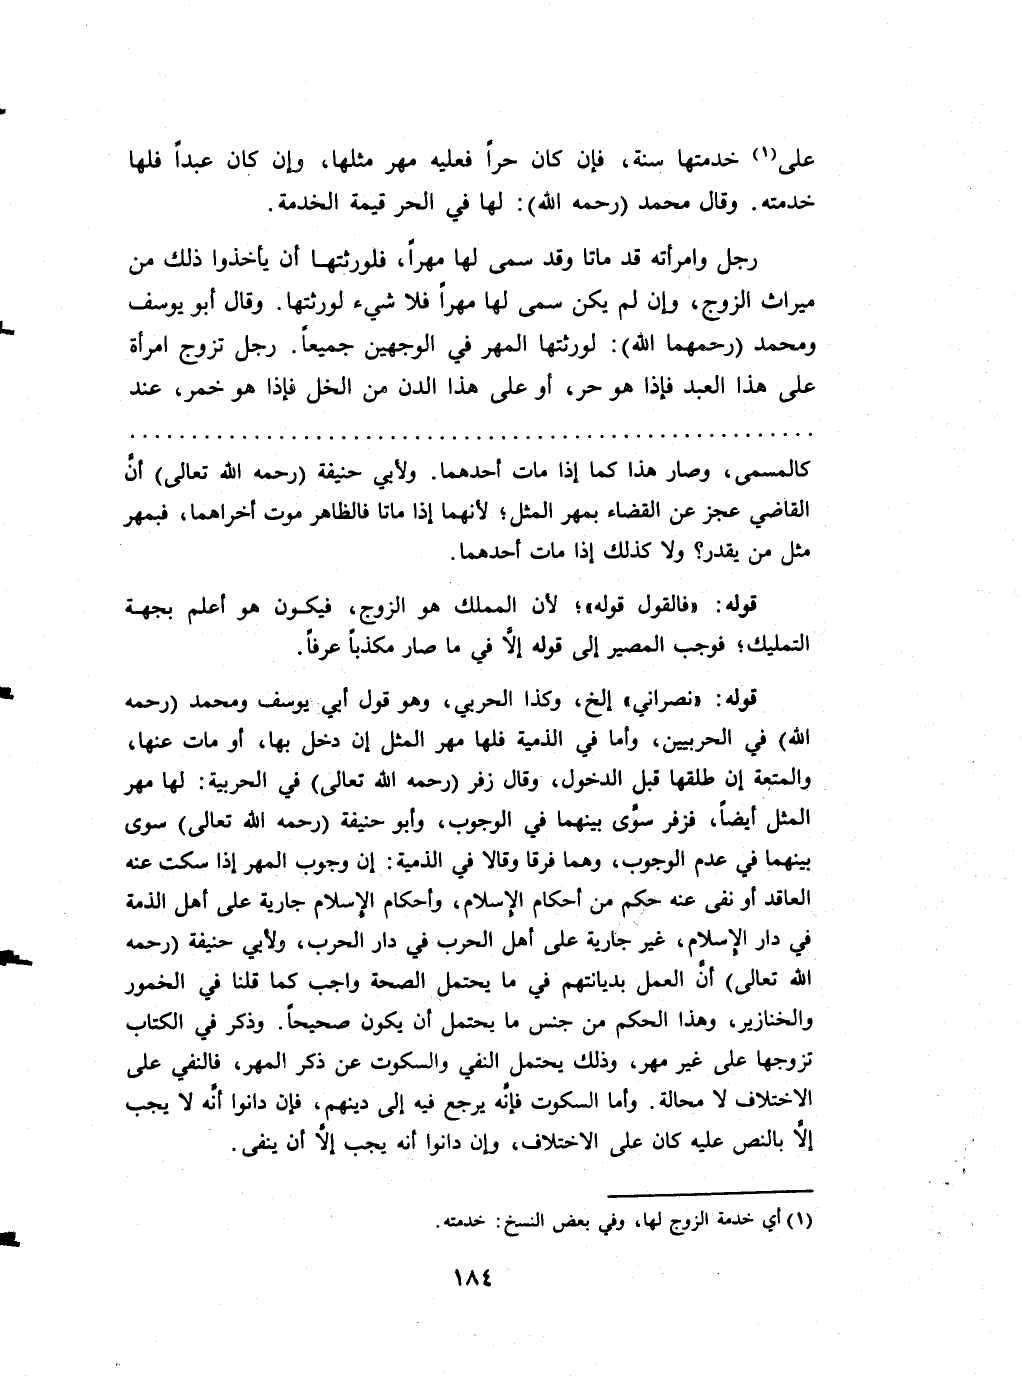 على(١) خدمتها سنة، فإن كان حراً فعليه مهر مثلها، وإن كان عبداً فلها
خدمته. وقال محمد (رحمه الله): لها في الحر قيمة الخدمة.
رجل وامرأته قد ماتا وقد سمى لها مهراً، فلورثتهـا أن يأخذوا ذلك من
ميراث الزوج، وإن لم يكن سمى لها مهراً فلا شيء لورثتها. وقال أبو يوسف
ومحمد (رحمهما الله): لورثتها المهر في الوجهين جميعاً. رجل تزوج امرأة
على هذا العبد فإذا هو حر، أو على هذا الدن من الخل فإذا هو خمر، عند
كالمسمى، وصار هذا كما إذا مات أحدهما. ولأبي حنيفة (رحمه الله تعالى) أنَّ
القاضي عجز عن القضاء بمهر المثل؛ لأنهما إذا ماتا فالظاهر موت أخراهما، فبمهر
مثل من يقدر؟ ولا كذلك إذا مات أحدهما.
قوله: «فالقول قوله»؛ لأن المملك هو الزوج، فيكـون هو أعلم بجهـة
التمليك؛ فوجب المصير إلى قوله إلَّا في ما صار مكذباً عرفاً.
قوله: «نصراني» إلخ، وكذا الحربي، وهو قول أبي يوسف ومحمد (رحمه
الله) في الحربيين، وأما في الذمية فلها مهر المثل إن دخل بها، أو مات عنها،
والمتعة إن طلقها قبل الدخول، وقال زفر (رحمه الله تعالى) في الحربية: لها مهر
المثل أيضاً، فزفر سوَّى بينهما في الوجوب، وأبو حنيفة (رحمه الله تعالى) سوى
بينهما في عدم الوجوب، وهما فرقا وقالا في الذمية: إن وجوب المهر إذا سكت عنه
العاقد أو نفى عنه حكم من أحكام الإسلام، وأحكام الإسلام جارية على أهل الذمة
في دار الإسلام، غير جارية على أهل الحرب في دار الحرب، ولأبي حنيفة (رحمه
الله تعالى) أنَّ العمل بديانتهم في ما يحتمل الصحة واجب كما قلنا في الخمور
والخنازير، وهذا الحكم من جنس ما يحتمل أن يكون صحيحاً. وذكر في الكتاب
تزوجها على غير مهر، وذلك يحتمل النفي والسكوت عن ذكر المهر، فالنفي على
الاختلاف لا محالة. وأما السكوت فإنَّه يرجع فيه إلى دينهم، فإن دانوا أنَّه لا يجب
إلَّا بالنص عليه كان على الاختلاف، وإن دانوا أنه يجب إلَّا أن ينفى.
(١) أي خدمة الزوج لها، وفي بعض النسخ: خدمته.
١٨٤